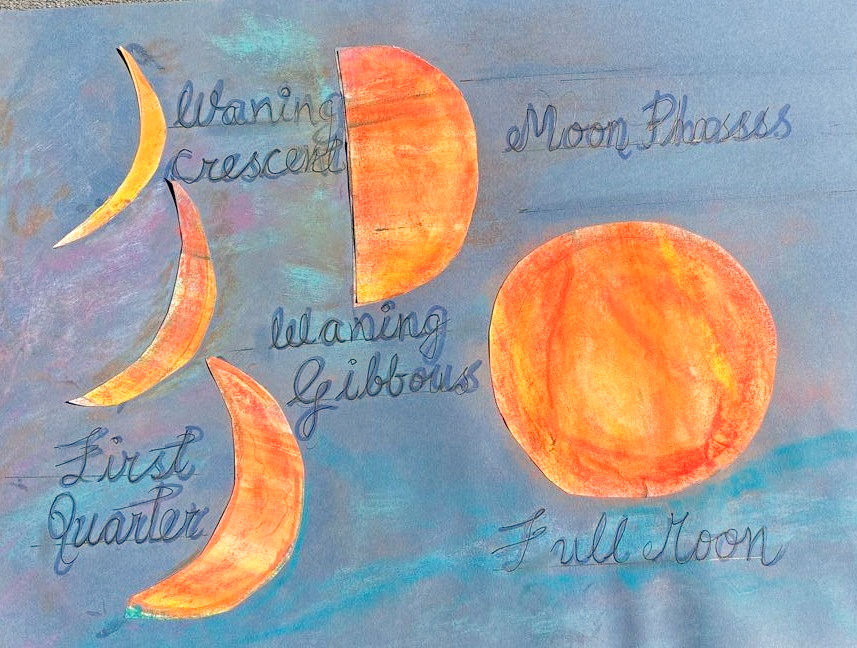 Waning
crescent
Moon Phassss
Waning
Gibbous
First
Quarter
Full Moon